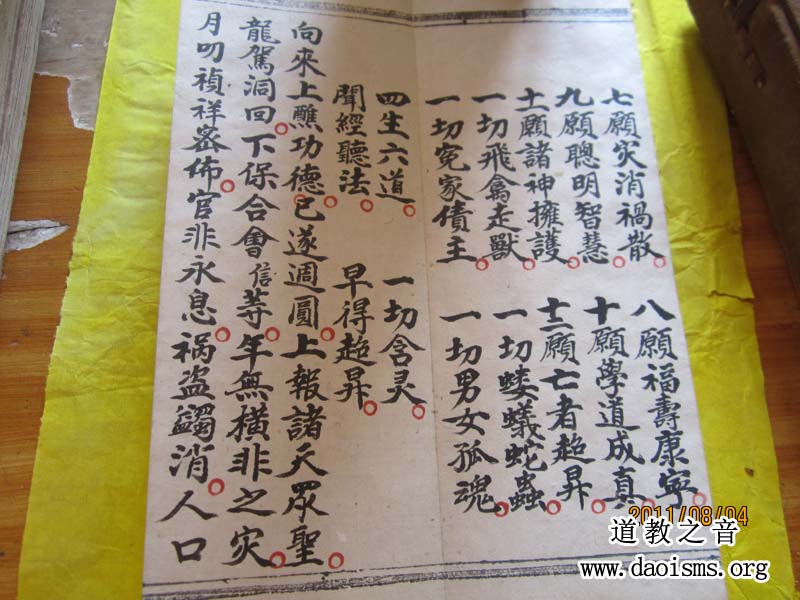 七願灾消禍散。 八願福壽康寧。
九願聰明智慧。 十願學道成真。
十一願諸神擁護。 十二願亡者超昇。
一切飛禽走獸。 一切蝼蟻蛇蟲。
一切冤家債主。 一切男女孤魂。
四生六道。 一切含灵。
聞經聽法。 早得超昇。
向來上醮功德。已遂週圓。上報諸天眾聖。
龍駕洞回。下保合會信等。年無橫非之灾。
月叨禎祥密佈。官非永息。祸盗蠲消。人口
2011/08/04
道教之音
www.daoisms.org